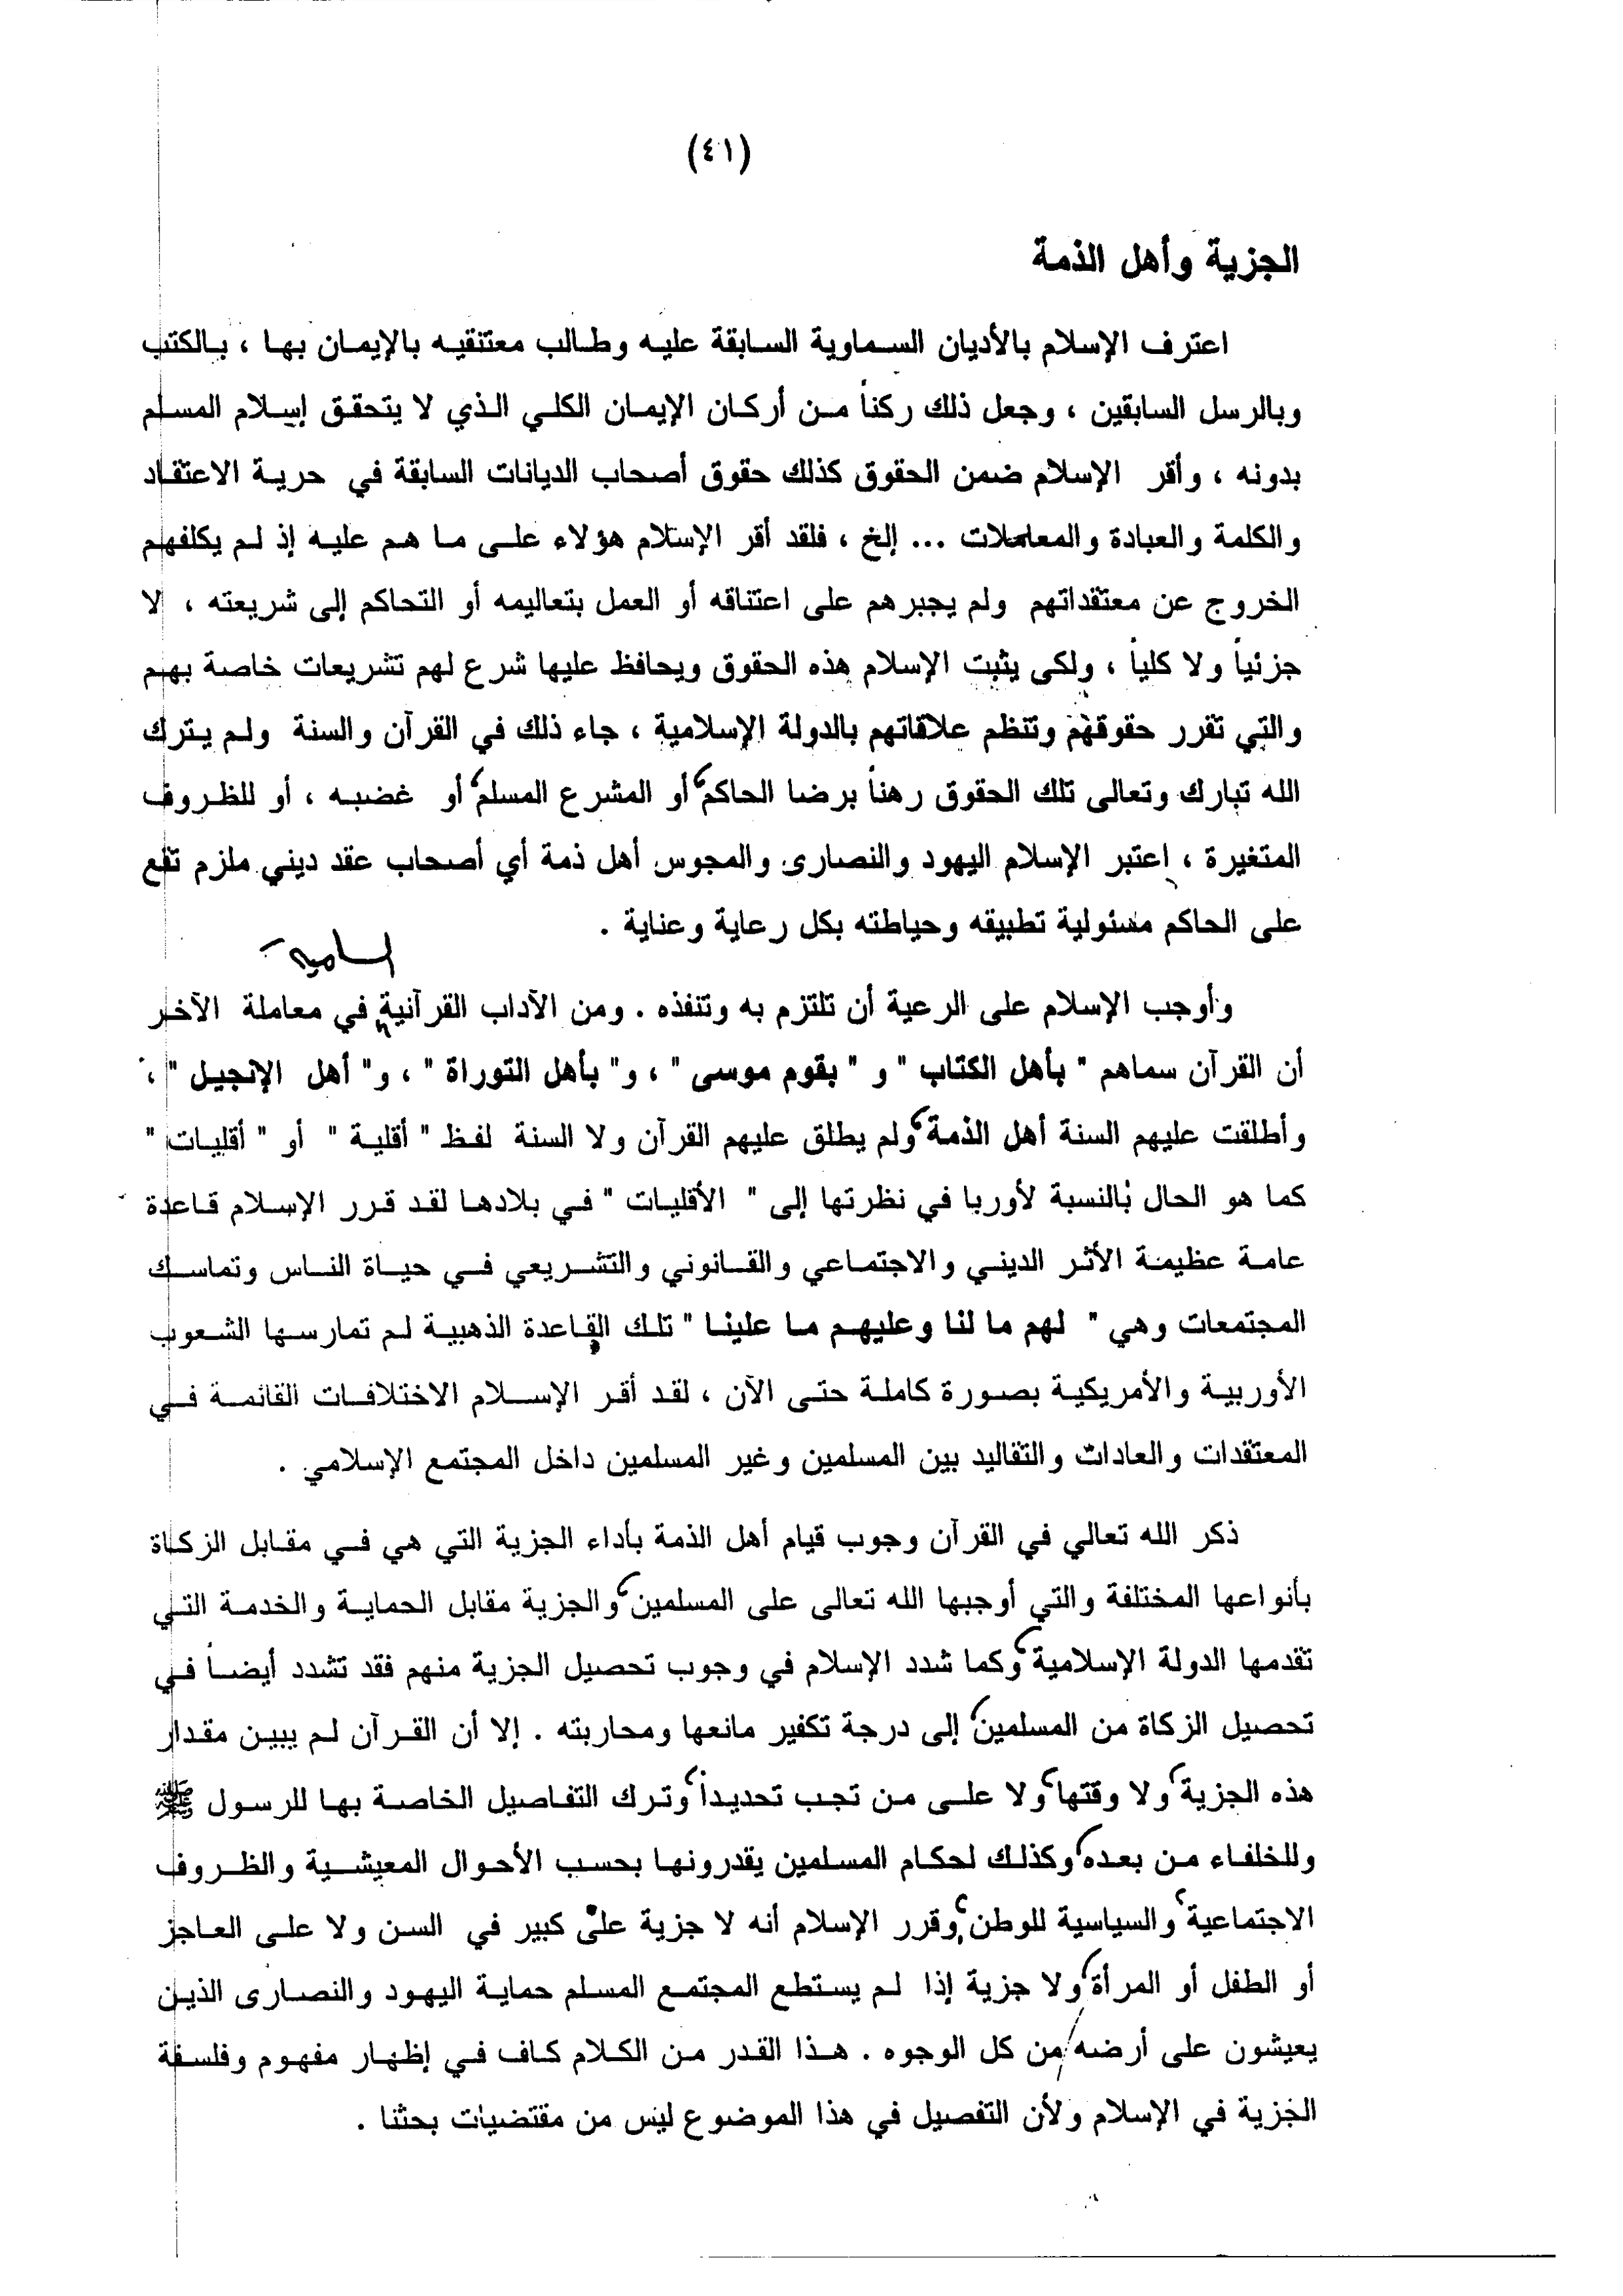 (٤١)
الجزية وأهل الذمة
اعترف الإسلام بالأديان السماوية السابقة عليه وطالب معتنقيه بالإيمان بها ، بالكتب
وبالرسل السابقين ، وجعل ذلك ركناً من أركان الإيمان الكلي الذي لا يتحقق إسلام المسلم
بدونه ، وأقر الإسلام ضمن الحقوق كذلك حقوق أصحاب الديانات السابقة في حرية الاعتقاد
والكلمة والعبادة والمعاملات ... إلخ ، فلقد أقر الإسلام هؤلاء على ما هم عليه إذ لم يكلفهم
الخروج عن معتقداتهم ولم يجبرهم على اعتناقه أو العمل بتعاليمه أو التحاكم إلى شريعته ، لا
جزئياً ولا كلياً ، ولكى يثبت الإسلام هذه الحقوق ويحافظ عليها شرع لهم تشريعات خاصة بهم
والتي تقرر حقوقهم وتنظم علاقاتهم بالدولة الإسلامية ، جاء ذلك في القرآن والسنة ولم يترك
الله تبارك وتعالى تلك الحقوق رهناً برضا الحاكم ، أو المشرع المسلم ، أو غضبه ، أو للظروف
المتغيرة ، اعتبر الإسلام اليهود والنصارى والمجوس أهل ذمة أي أصحاب عقد ديني ملزم تقع
على الحاكم مسئولية تطبيقه وحياطته بكل رعاية وعناية .
السامية
وأوجب الإسلام على الرعية أن تلتزم به وتنفذه . ومن الآداب القرآنية في معاملة الآخر
أن القرآن سماهم " بأهل الكتاب " و " بقوم موسى " ، و" بأهل التوراة " ، و" أهل الإنجيل " ،
وأطلقت عليهم السنة أهل الذمة ، ولم يطلق عليهم القرآن ولا السنة لفظ " أقلية " أو " أقليات "
كما هو الحال بالنسبة لأوربا في نظرتها إلى " الأقليات " في بلادها لقد قرر الإسلام قاعدة
عامة عظيمة الأثر الديني والاجتماعي والقانوني والتشريعي في حياة الناس وتماسك
المجتمعات وهي " لهم ما لنا وعليهم ما علينا " تلك القاعدة الذهبية لم تمارسها الشعوب
الأوربية والأمريكية بصورة كاملة حتى الآن ، لقد أقر الإسلام الاختلافات القائمة في
المعتقدات والعادات والتقاليد بين المسلمين وغير المسلمين داخل المجتمع الإسلامي .
ذكر الله تعالي في القرآن وجوب قيام أهل الذمة بأداء الجزية التي هي في مقابل الزكاة
بأنواعها المختلفة والتي أوجبها الله تعالى على المسلمين ، والجزية مقابل الحماية والخدمة التي
تقدمها الدولة الإسلامية ، وكما شدد الإسلام في وجوب تحصيل الجزية منهم فقد تشدد أيضاً في
تحصيل الزكاة من المسلمين ، إلى درجة تكفير مانعها ومحاربته . إلا أن القرآن لم يبين مقدار
هذه الجزية ، ولا وقتها ، ولا على من تجب تحديداً ، وترك التفاصيل الخاصة بها للرسول ﷺ
وللخلفاء من بعده ، وكذلك لحكام المسلمين يقدرونها بحسب الأحوال المعيشية والظروف
الاجتماعية ، والسياسية للوطن ، وقرر الإسلام أنه لا جزية على كبير في السن ولا على العاجز
أو الطفل أو المرأة ، ولا جزية إذا لم يستطع المجتمع المسلم حماية اليهود والنصارى الذين
يعيشون على أرضه / من كل الوجوه . هذا القدر من الكلام كاف في إظهار مفهوم وفلسفة
الجزية في الإسلام ولأن التفصيل في هذا الموضوع ليس من مقتضيات بحثنا .